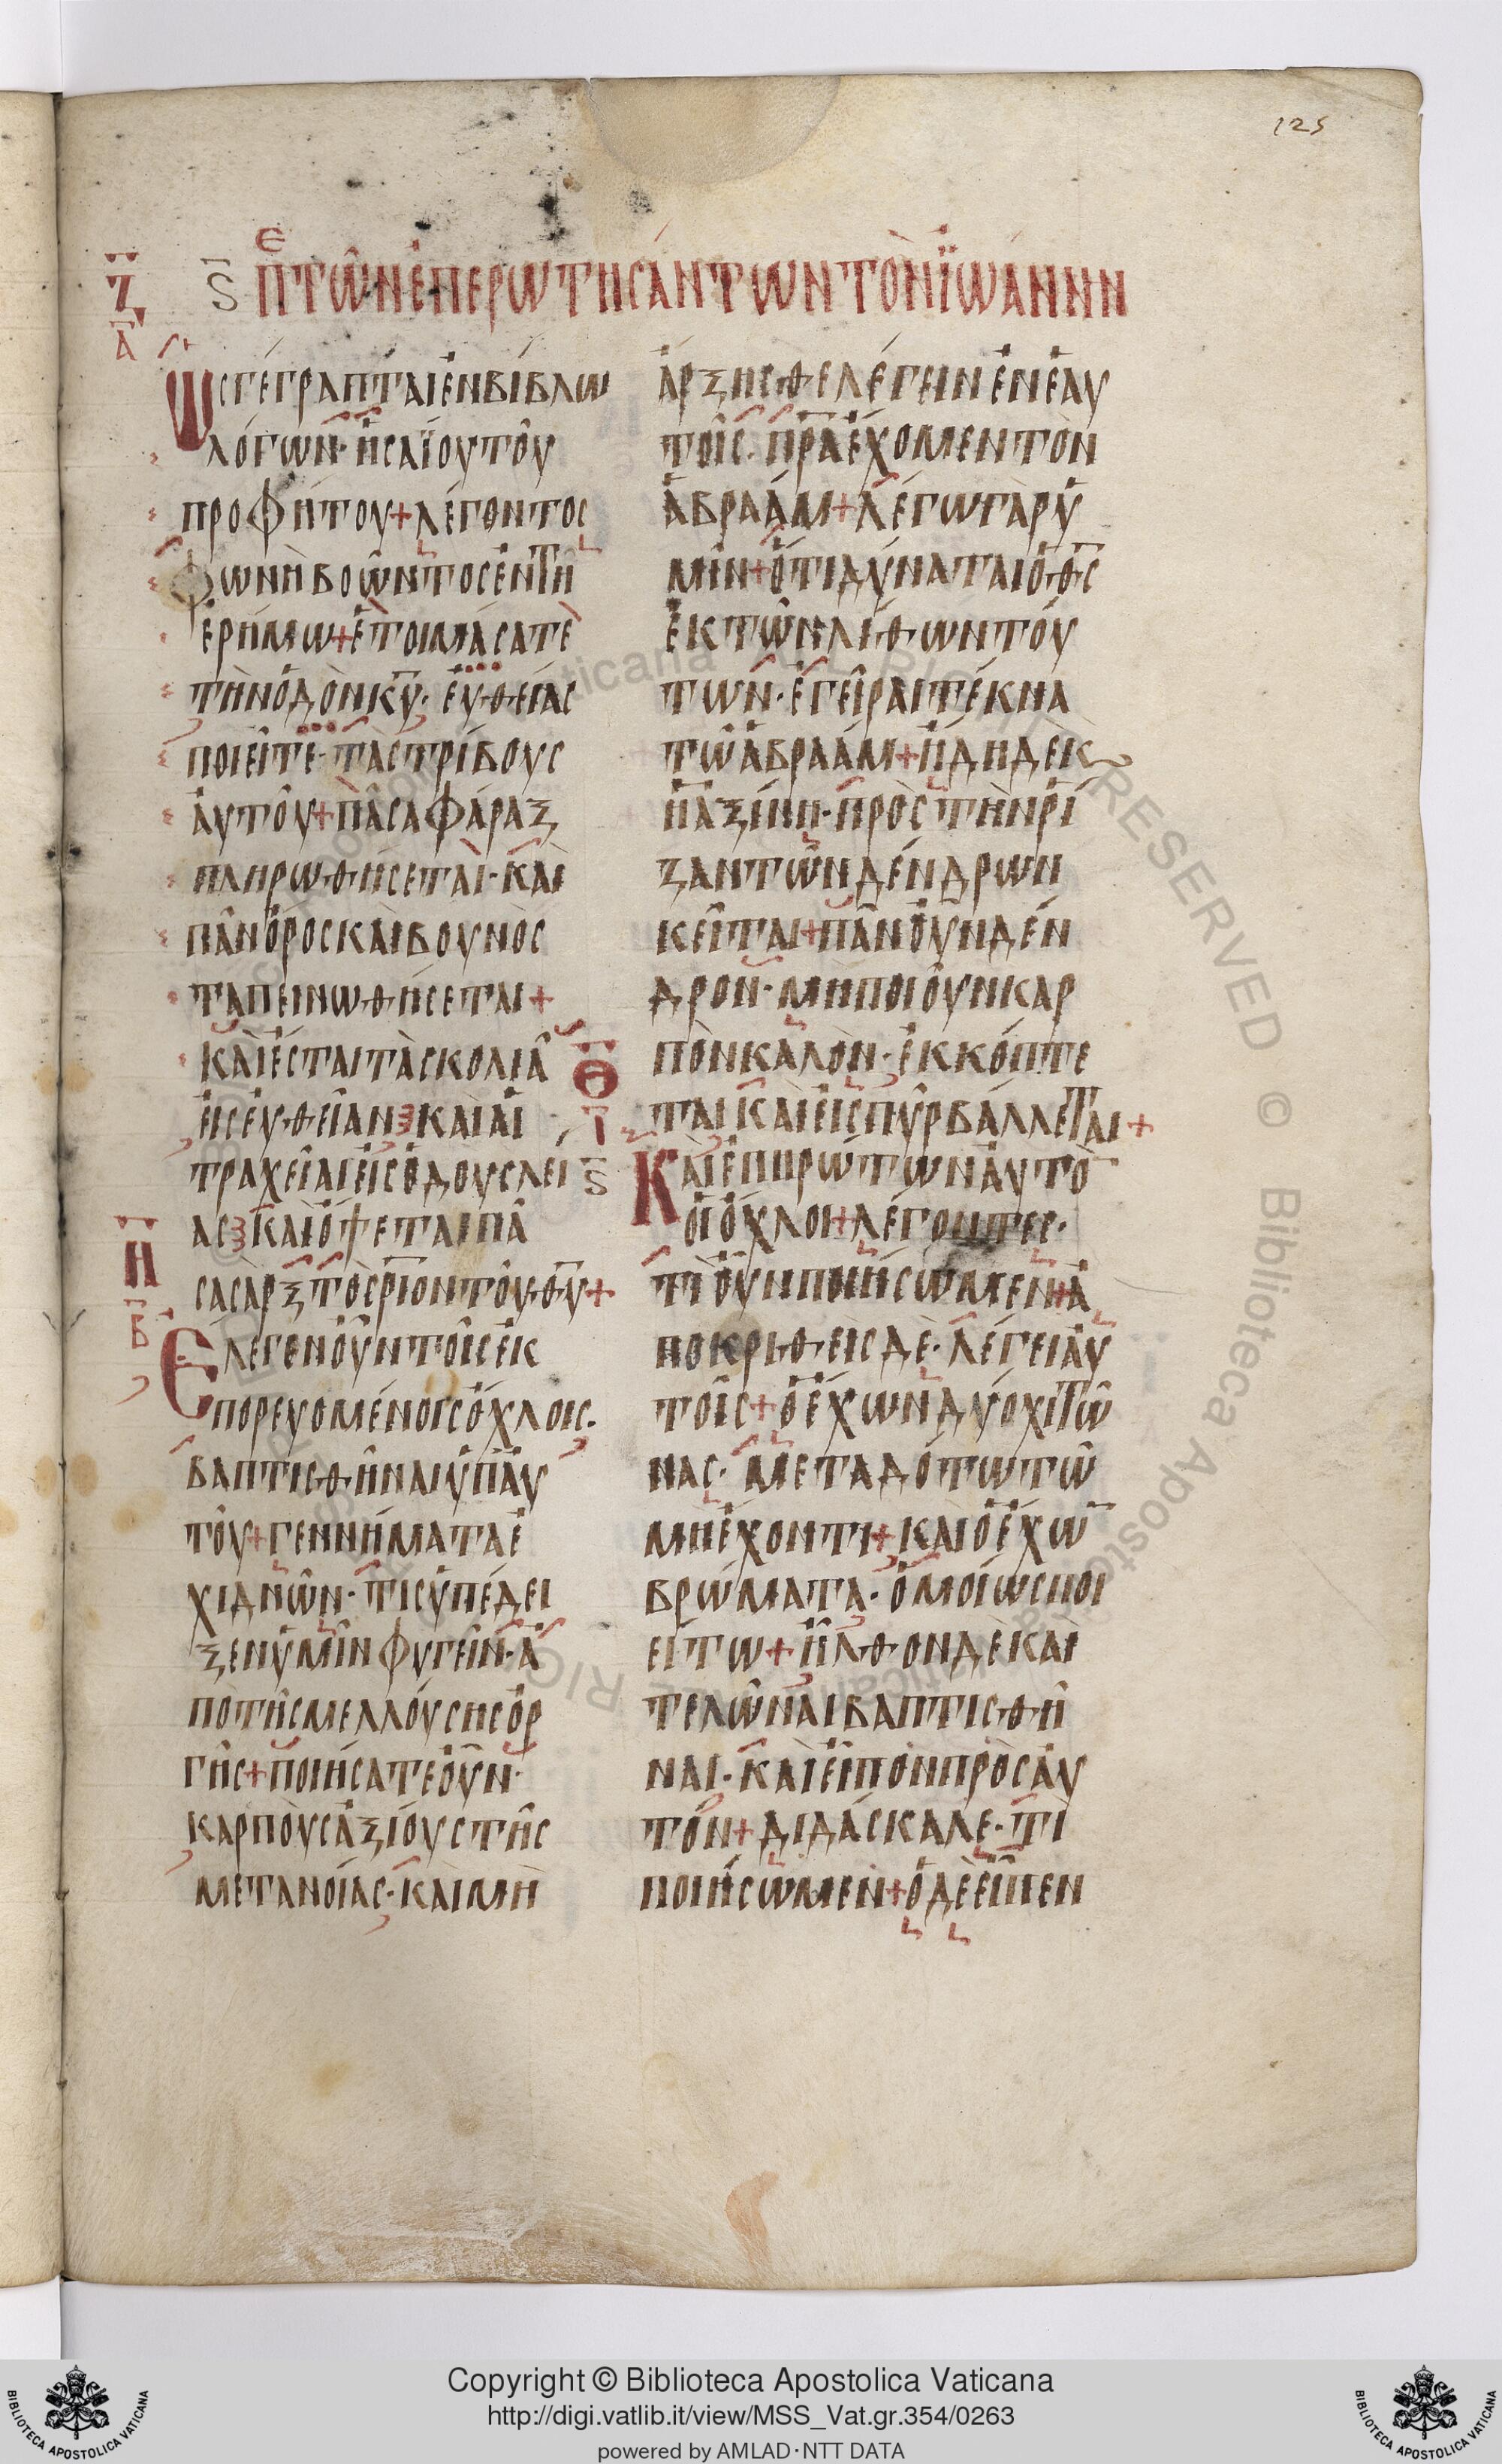 125
ε
Ζ Ϛ ΠΤΩ͂ΝἘΠΕΡΩΤΗΣΆΝΤΩΝΤῸΝἸ̈ΩΆΝΝΗΝ
Α
ὩΣΓΈΓΡΑΠΤΑΙἘΝΒΊΒΛΩ
ΛΌΓΩΝ· ἩΣΑΪ́ΟΥΤΟΥ͂
ΠΡΟΦΉΤΟΥ+ΛΈΓΟΝΤΟΣ
ΦΩΝῊΒΟΩ͂ΝΤΟΣἘΝΤΗ͂
ἘΡΉΜΩ+ἙΤΟΙΜΆΣΑΤΕ
ΤῊΝὉΔῸΝΚΥ̅· ΕΥ̓ΘΕΊΑΣ
ΠΟΙΕΙ͂ΤΕ· ΤᾺΣΤΡΊΒΟΥΣ
ΑΥ̓ΤΟΥ͂+ΠΑ͂ΣΑΦΆΡΑΞ
ΠΛΗΡΩΘΉΣΕΤΑΙ· ΚΑῚ
ΠΑ͂ΝὌΡΟΣΚΑῚΒΟΥΝῸΣ
ΤΑΠΕΙΝΩΘΉΣΕΤΑΙ+
ΚΑῚἜΣΤΑΙΤᾺΣΚΟΛΙᾺ
ΕἸΣΕΥ̓ΘΕΙ͂ΑΝ ΚΑῚΑἹ
ΤΡΑΧΕΙ͂ΑΙΕἸΣὉΔΟΥΣΛΕΙ
ΑΣ ΚΑῚὌΨΕΤΑΙΠΑ͂
Η
ΣΑΣΑΡΞΤῸΣΡΙΟΝΤΟΥ͂ΘΥ̅+
Β
ἜΛΕΓΕΝΟΥ̓͂ΝΤΟΙ͂ΣἘΚ
ΠΟΡΕΥΟΜΈΝΟΙΣὌΧΛΟΙΣ·
ΒΑΠΤΙΣΘΗ͂ΝΑΙὙΠΑΥ̓
ΤΟΥ͂+ΓΕΝΝΉΜΑΤΑἘ
ΧΙΔΝΩ͂Ν· ΤΊΣὙΠΈΔΕΙ
ΞΕΝὙΜΙ͂ΝΦΥΓΕΙ͂Ν· Ἀ
ΠῸΤΗ͂ΣΜΕΛΛΟΎΣΗΣὈΡ
ΓΗ͂Σ+ΠΟΙΉΣΑΤΕΟΥ̓͂Ν·
ΚΑΡΠΟῪΣἈΞΊΟΥΣΤΗ͂Σ
ΜΕΤΑΝΟΊΑΣ· ΚΑῚΜῊ
ἌΡΞΗΣΘΕΛΈΓΕΙΝἘΝἘΑΥ
ΤΟΙ͂Σ· ΠΡ̅ΑἜΧΟΜΕΝΤῸΝ
ἈΒΡΑΆΜ+ΛΈΓΩΓᾺΡὙ
ΜΙ͂Ν+ὍΤΙΔΎΝΑΤΑΙὉΘΣ̅
ἘΚΤΩ͂ΝΛΊΘΩΝΤΟΎ
ΤΩΝ· ἘΓΕΙ͂ΡΑΙΤΈΚΝΑ
ΤΩ͂ἈΒΡΑΆΜ+ἬΔΗΔΕΚ
ἩἈΞΊΝΗ· ΠΡῸΣΤῊΝΡΊ
ΖΑΝΤΩ͂ΝΔΈΝΔΡΩΝ
ΚΕΙ͂ΤΑΙ+ΠΑ͂ΝΟΥ̓͂ΝΔΈΝ
ΔΡΟΝ· ΜῊΠΟΙΟΥ͂ΝΚΑΡ
ΠῸΝΚΑΛῸΝ· ἘΚΚΌΠΤΕ
Θ
ΤΑΙΚΑῚΕἸΣΠΥ͂ΡΒΆΛΛΕΤΑΙ+
Ι
Ϛ ΚΑῚἘΠΗΡΏΤΩΝΑΥ̓ΤῸ
ΟἹὌΧΛΟΙ+ΛΈΓΟΝΤΕΣ·
ΤΊΟΥ̓͂ΝΠΟΙΉΣΩΜΕΝ+Ἀ
ΠΟΚΡΙΘΕῚΣΔῈ· ΛΈΓΕΙΑΥ̓
ΤΟΙ͂Σ+ὉἜΧΩΝΔΎΟΧΙΤΩ͂
ΝΑΣ· ΜΕΤΑΔΌΤΩΤΩ͂
ΜῊἜΧΟΝΤΙ+ΚΑῚὉἜΧΩ̅
ΒΡΏΜΑΤΑ· ὉΜΟΊΩΣΠΟΙ
ΕΊΤΩ+ἮΛΘΟΝΔΕΚΑῚ
ΤΕΛΩ͂ΝΑΙΒΑΠΤΙΣΘΗ͂
ΝΑΙ· ΚΑῚΕἾΠΟΝΠΡῸΣΑΥ̓
ΤΌΝ+ΔΙΔΆΣΚΑΛΕ· ΤΊ
ΠΟΙΉΣΩΜΕΝ+ὉΔῈΕἾΠΕΝ
Copyright © Biblioteca Apostolica Vaticana
http://digi.vatlib.it/view/MSS_Vat.gr.354/0263
powered by AMLAD·NTT DATA
BIBLIOTECA APOSTOLICA VATICANA
BIBLIOTECA APOSTOLICA VATICANA